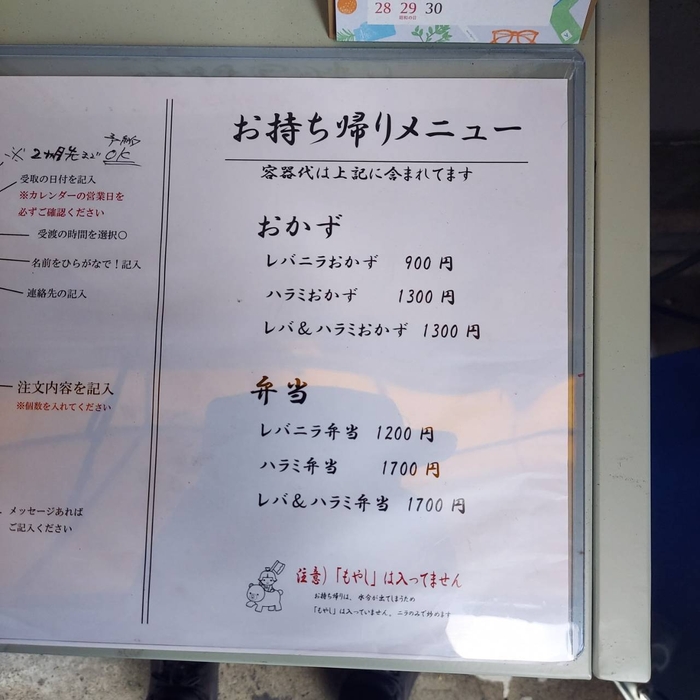 28 29 30
※2ヶ月先までOK
予約
受取の日付を記入
※カレンダーの営業日を
必ずご確認ください
受渡の時間を選択〇
名前をひらがなで!記入
連絡先の記入
注文内容を記入
※個数を入れてください
メッセージあれば
ご記入ください
お持ち帰りメニュー
容器代は上記に含まれてます
おかず
レバニラおかず 900円
ハラミおかず 1300円
レバ&ハラミおかず 1300円
弁当
レバニラ弁当 1200円
ハラミ弁当 1700円
レバ&ハラミ弁当 1700円
注意)「もやし」は入ってません
お持ち帰りは、水分が出てしまうため
「もやし」は入っていません。ニラのみで炒めます